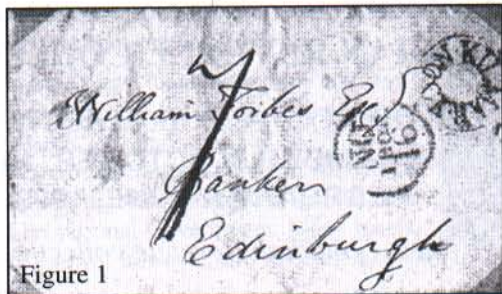 7
William Forbes Esq
Banker
Edinburgh
Figure 1